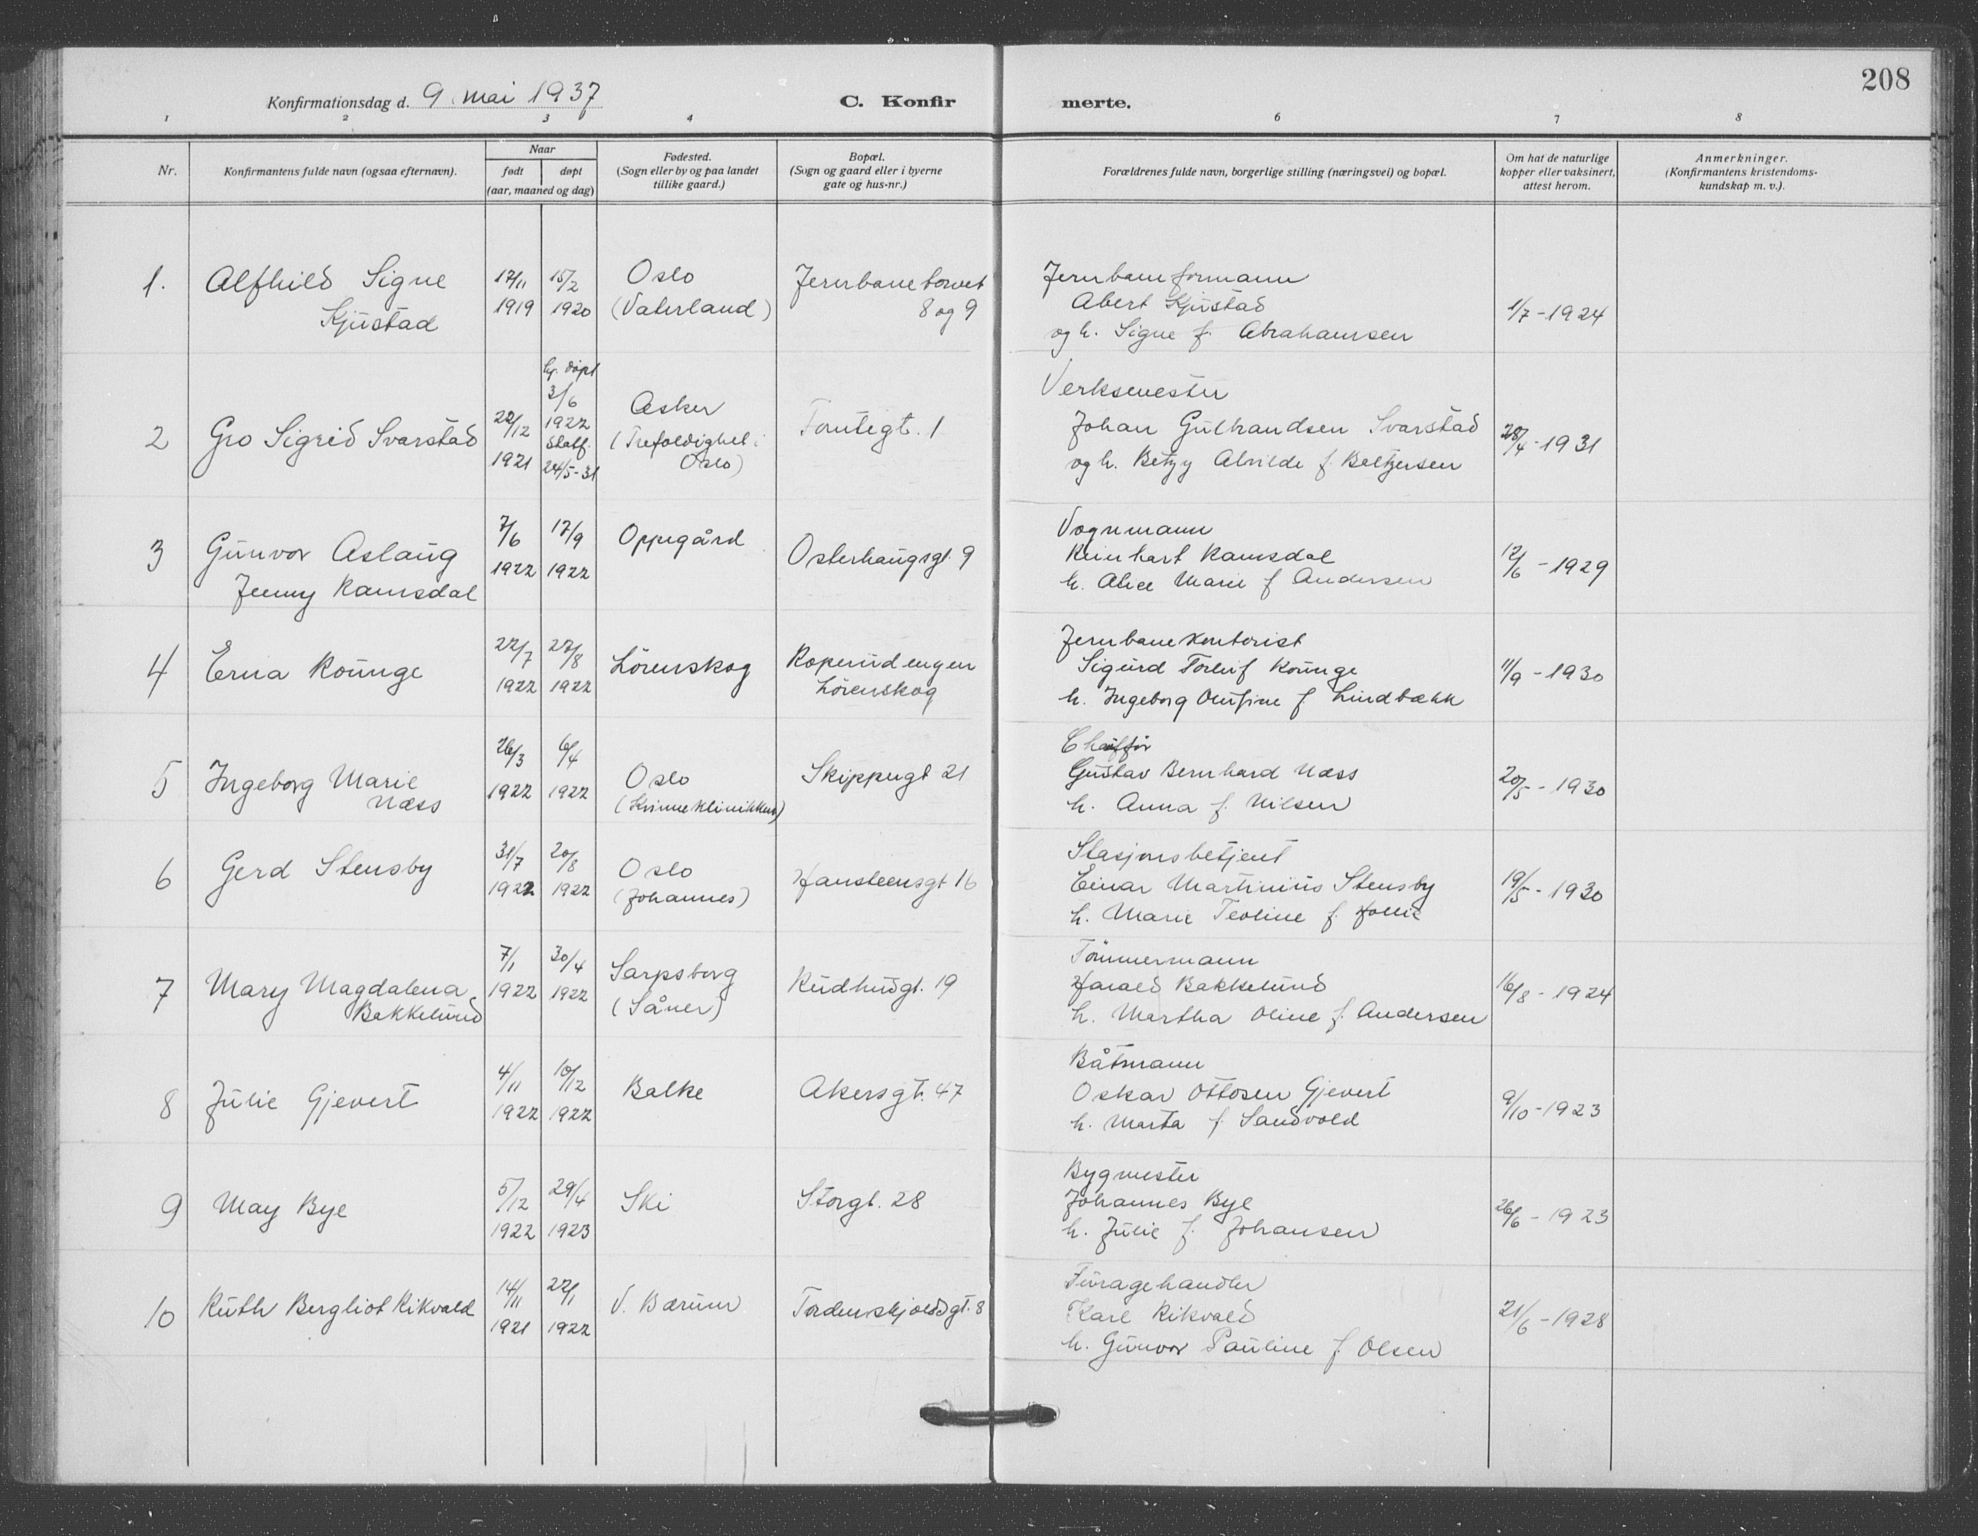 208
Konfirmationsdag d. 9. mai 1937 C. Konfirmerte.
1 2 3 4 6 7 8
Nr.
Konfirmantens fulde navn (ogsaa efternavn).
Naar
født døpt
(aar, maaned og dag)
Fødested.
(Sogn eller by og paa landet
tillike gaard.)
Bopæl.
(Sogn og gaard eller i byerne
gate og hus-nr.)
Forældrenes fulde navn, borgerlige stilling (næringsvei) og bopæl.
Om hat de naturlige
kopper eller vaksinert,
attest herom.
Anmerkninger.
(Konfirmantens kristendoms-
kundskap m. v.).
1.
Alfhild Signe
Kjustad
17/11
1919
15/2
1920
Oslo
(Vaterland)
Jernbanetorvet
8 og 9
Jernbaneformann
Abert Kjustad
og h. Signe f. Abrahamsen
1/7 - 1924
2
Gro Sigrid Svarstad
22/12
1921
hj. døpt
3/6
1922
Statf.
24/5-31
Asker
(Trefoldighet i
Oslo)
Tomtegt. 1
Verksmester
Johan Gulbrandsen Svarstad
og h. Betzy Alvilde f. Beltzersen
28/4 - 1931
3
Gunvor Aslaug
Jenny Ramsdal
7/6
1922
17/9
1922
Oppegård
Osterhaugsgt. 9
Vognmann
Reinhart Ramsdal
h. Alice Marie f Andersen
12/6 - 1929
4
Erna Rounge
22/7
1922
27/8
1922
Lörenskog
Roperudengen
Lörenskog
Jernbanekontorist
Sigurd Torleif Rounge
h. Ingeborg Olufine f Lindbækk
11/9 - 1930
5
Ingeborg Marie
Næss
26/3
1922
6/4
1922
Oslo
(Kvinneklinikken)
Skippergt 21
Chaufför
Gustav Bernhard Næss
h. Anna f. Nilsen
20/5 - 1930
6
Gerd Stensby
31/7
1922
20/8
1922
Oslo
(Johannes)
Hansteensgt 16
Stasjonsbetjent
Einar Martinius Stensby
h. Marie Teoline f. Hollie
19/5 - 1930
7
Mary Magdalena
Bakkelund
7/1
1922
30/4
1922
Sarpsborg
(Såner)
Rudhusgt. 19
Tömmermann
Harald Bakkelund
h. Martha Oline f. Andersen
16/8 - 1924
8
Julie Gjevert
4/11
1922
10/12
1922
Balke
Akersgt. 47
Båtsmann
Oskar Ottosen Gjevert
h. Marta f Sandvold
9/10 - 1923
9
May Bye
5/12
1922
29/4
1923
Ski
Storgt. 28
Bygmester
Johannes Bye
h. Julie f. Johansen
26/6 - 1923
10
Ruth Bergliot Rikvald
14/11
1921
22/1
1922
V. Bærum
Tordenskjoldsgt. 8
Furagehandler
Karl Rikvald
h. Gunvor Pauline f Olsen
21/6 - 1928